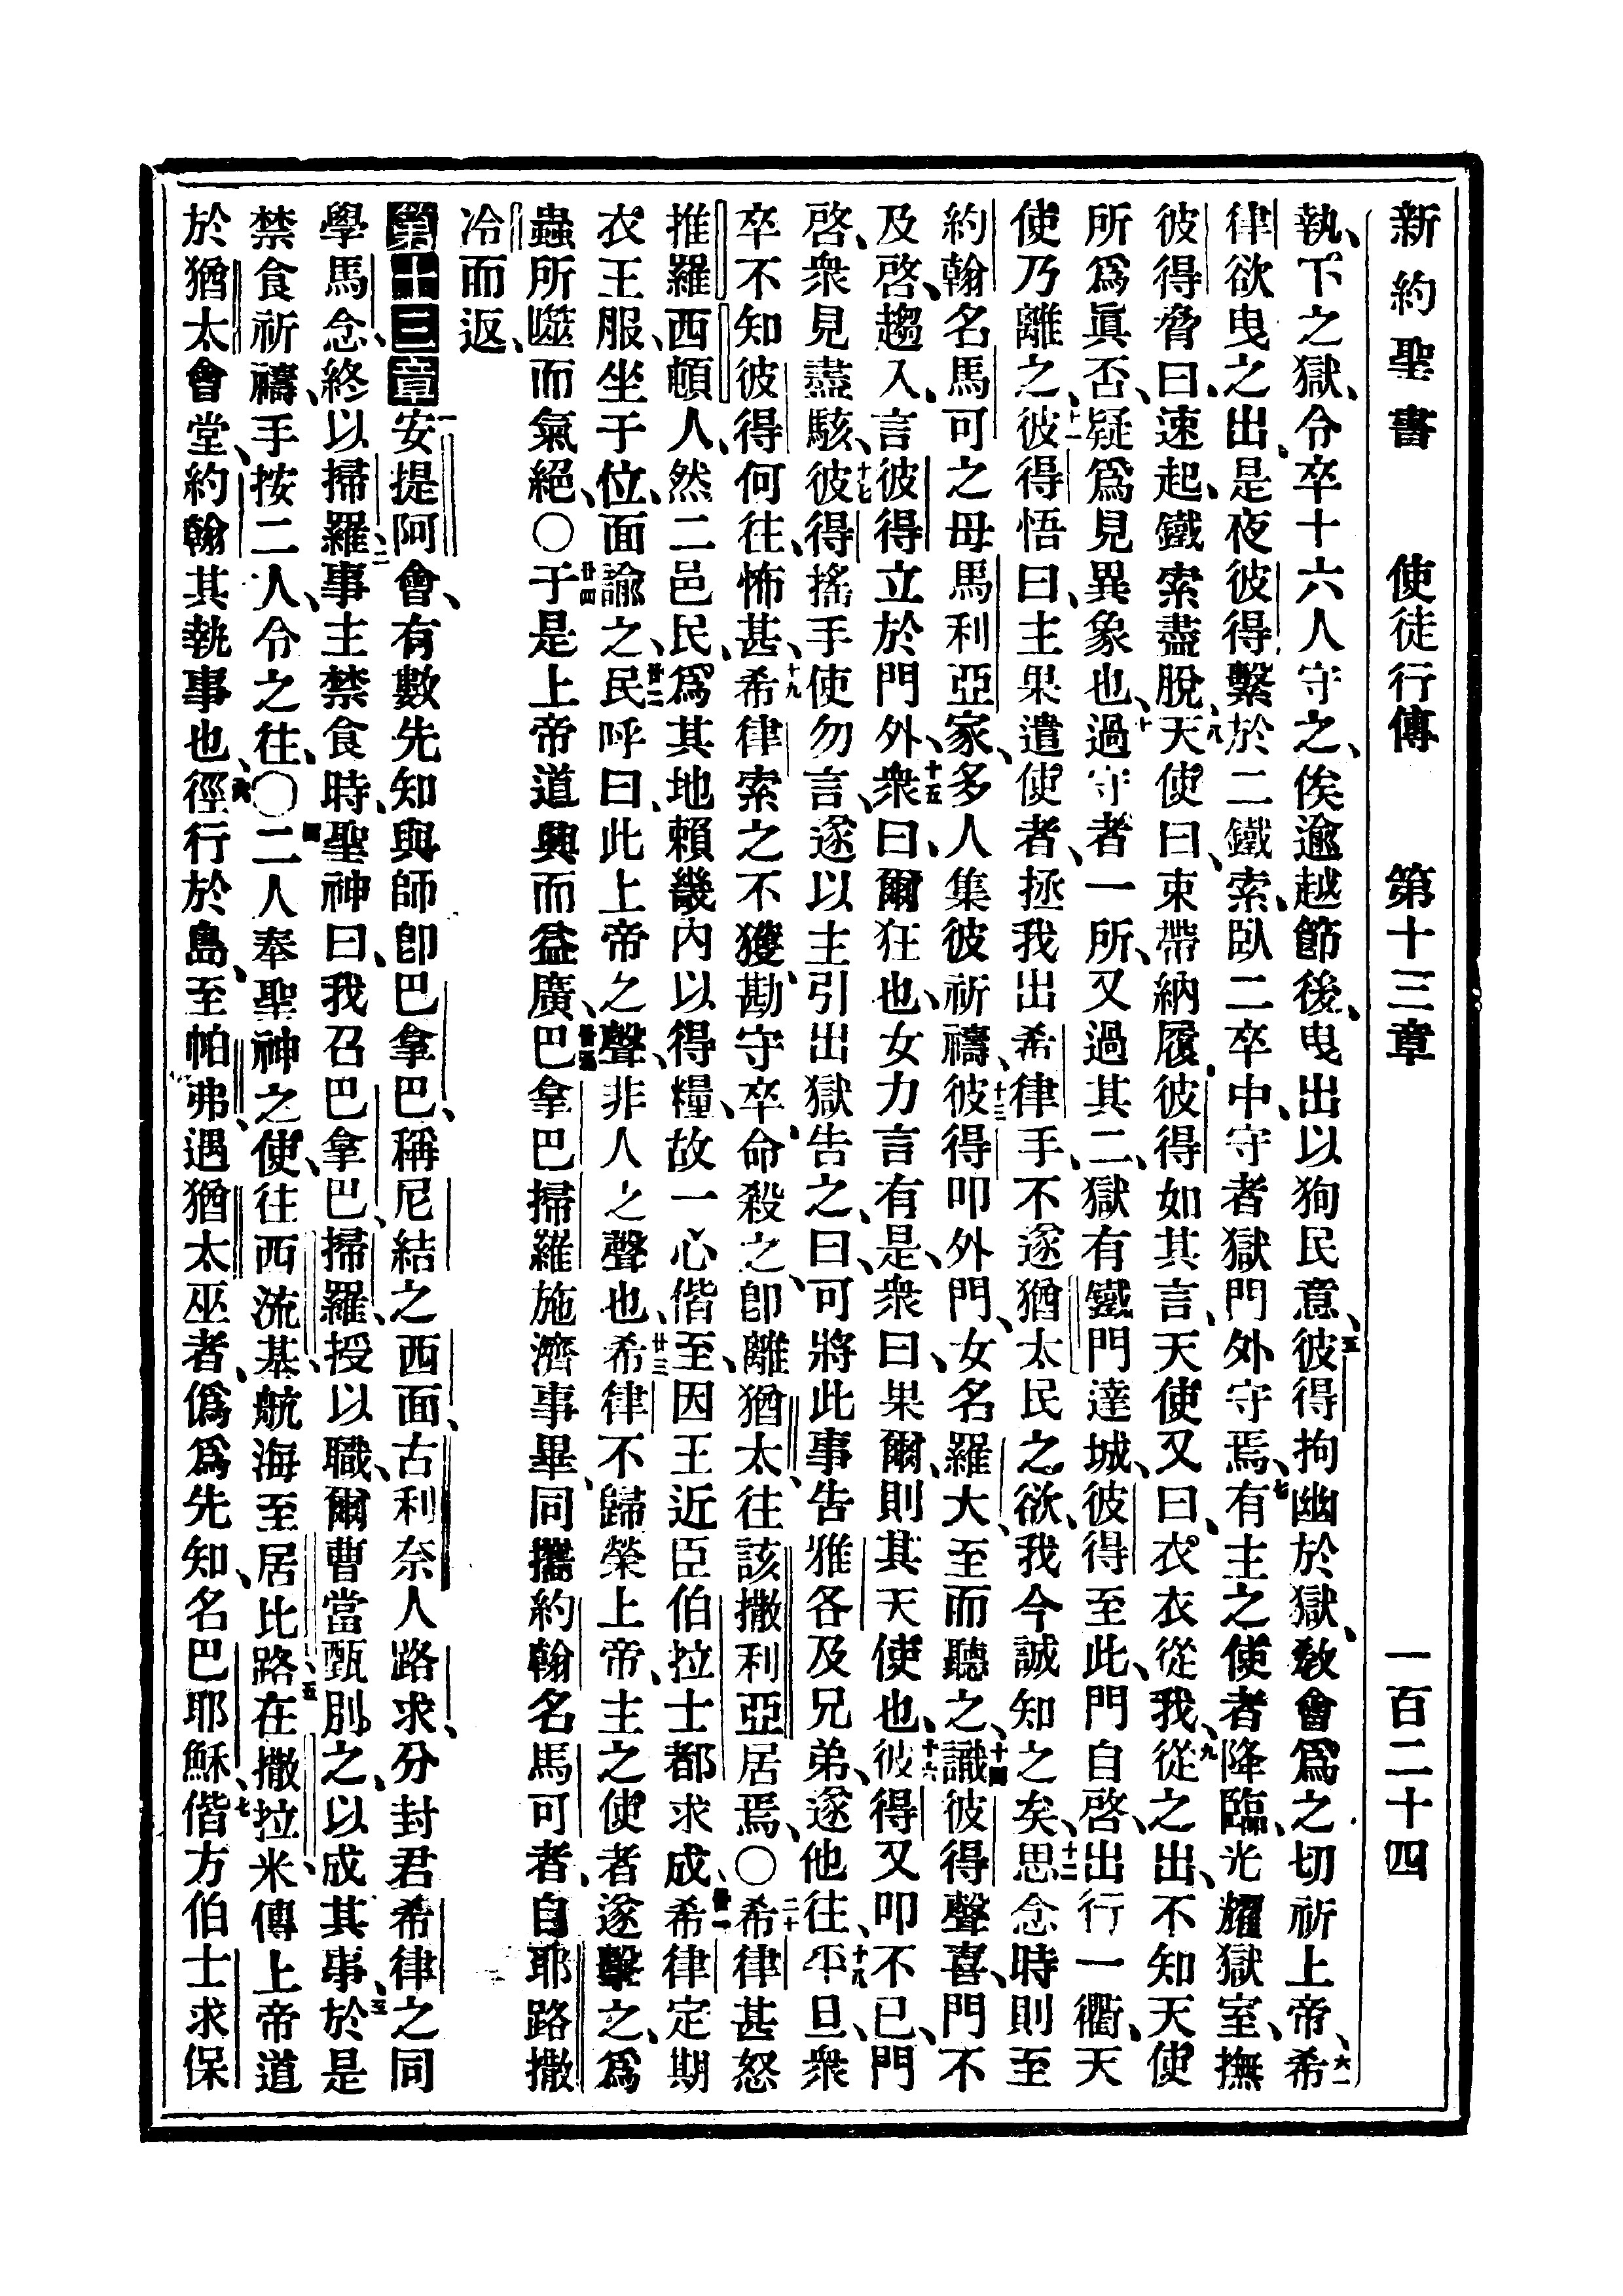 新約聖書　使徒行傳　第十三章　一百二十四
執、下之獄、令卒十六人守之、俟逾越節後、曳出以狥民意、五彼得拘幽於獄、敎會爲之切祈上帝、六希
律欲曳之出、是夜彼得繫於二鐵索、臥二卒中、守者獄門外守焉、七有主之使者降臨、光耀獄室、撫
彼得脅曰、速起、鐵索盡脫、八天使曰、束帶納履、彼得如其言、天使又曰、衣衣從我、九從之出、不知天使
所爲眞否、疑爲見異象也、十過守者一所、又過其二、獄有鐵門達城、彼得至此、門自啓、出行一衢、天
使乃離之、十一彼得悟曰、主果遣使者、拯我出希律手、不遂猶太民之欲、我今誠知之矣、十二思念時則至
約翰名馬可之母馬利亞家、多人集彼祈禱、十三彼得叩外門、女名羅大、至而聽之、十四識彼得聲喜、門不
及啓、趨入、言彼得立於門外、十五衆曰、爾狂也、女力言有是、衆曰、果爾、則其天使也、十六彼得又叩不已、門
啓、衆見盡駭、十七彼得搖手使勿言、遂以主引出獄告之、曰、可將此事告雅各及兄弟、遂他往、十八平旦、衆
卒不知彼得何往、怖甚、十九希律索之不獲、勘守卒、命殺之、卽離猶太、往該撒利亞居焉、〇二十希律甚怒
推羅西頓人、然二邑民、爲其地賴畿內以得糧、故一心偕至、因王近臣伯拉士都求成、廿一希律定期
衣王服、坐于位、面諭之、廿二民呼曰、此上帝之聲、非人之聲也、廿三希律不歸榮上帝、主之使者遂擊之、爲
蟲所噬而氣絕、〇廿四于是上帝道興而益廣、廿五巴拿巴掃羅施濟事畢、同攜約翰名馬可者、自耶路撒
冷而返、
第十三章一安提阿會、有數先知與師卽巴拿巴、稱尼結之西面、古利奈人路求、分封君希律之同
學馬念、終以掃羅、二事主禁食時、聖神曰、我召巴拿巴、掃羅、授以職、爾曹當甄別之、以成其事、三於是
禁食祈禱、手按二人、令之往、〇四二人奉聖神之使、往西流基、航海至居比路、五在撒拉米傳上帝道
於猶太會堂、約翰其執事也、六徑行於島、至帕弗、遇猶太巫者、僞爲先知、名巴耶穌、七偕方伯士求保